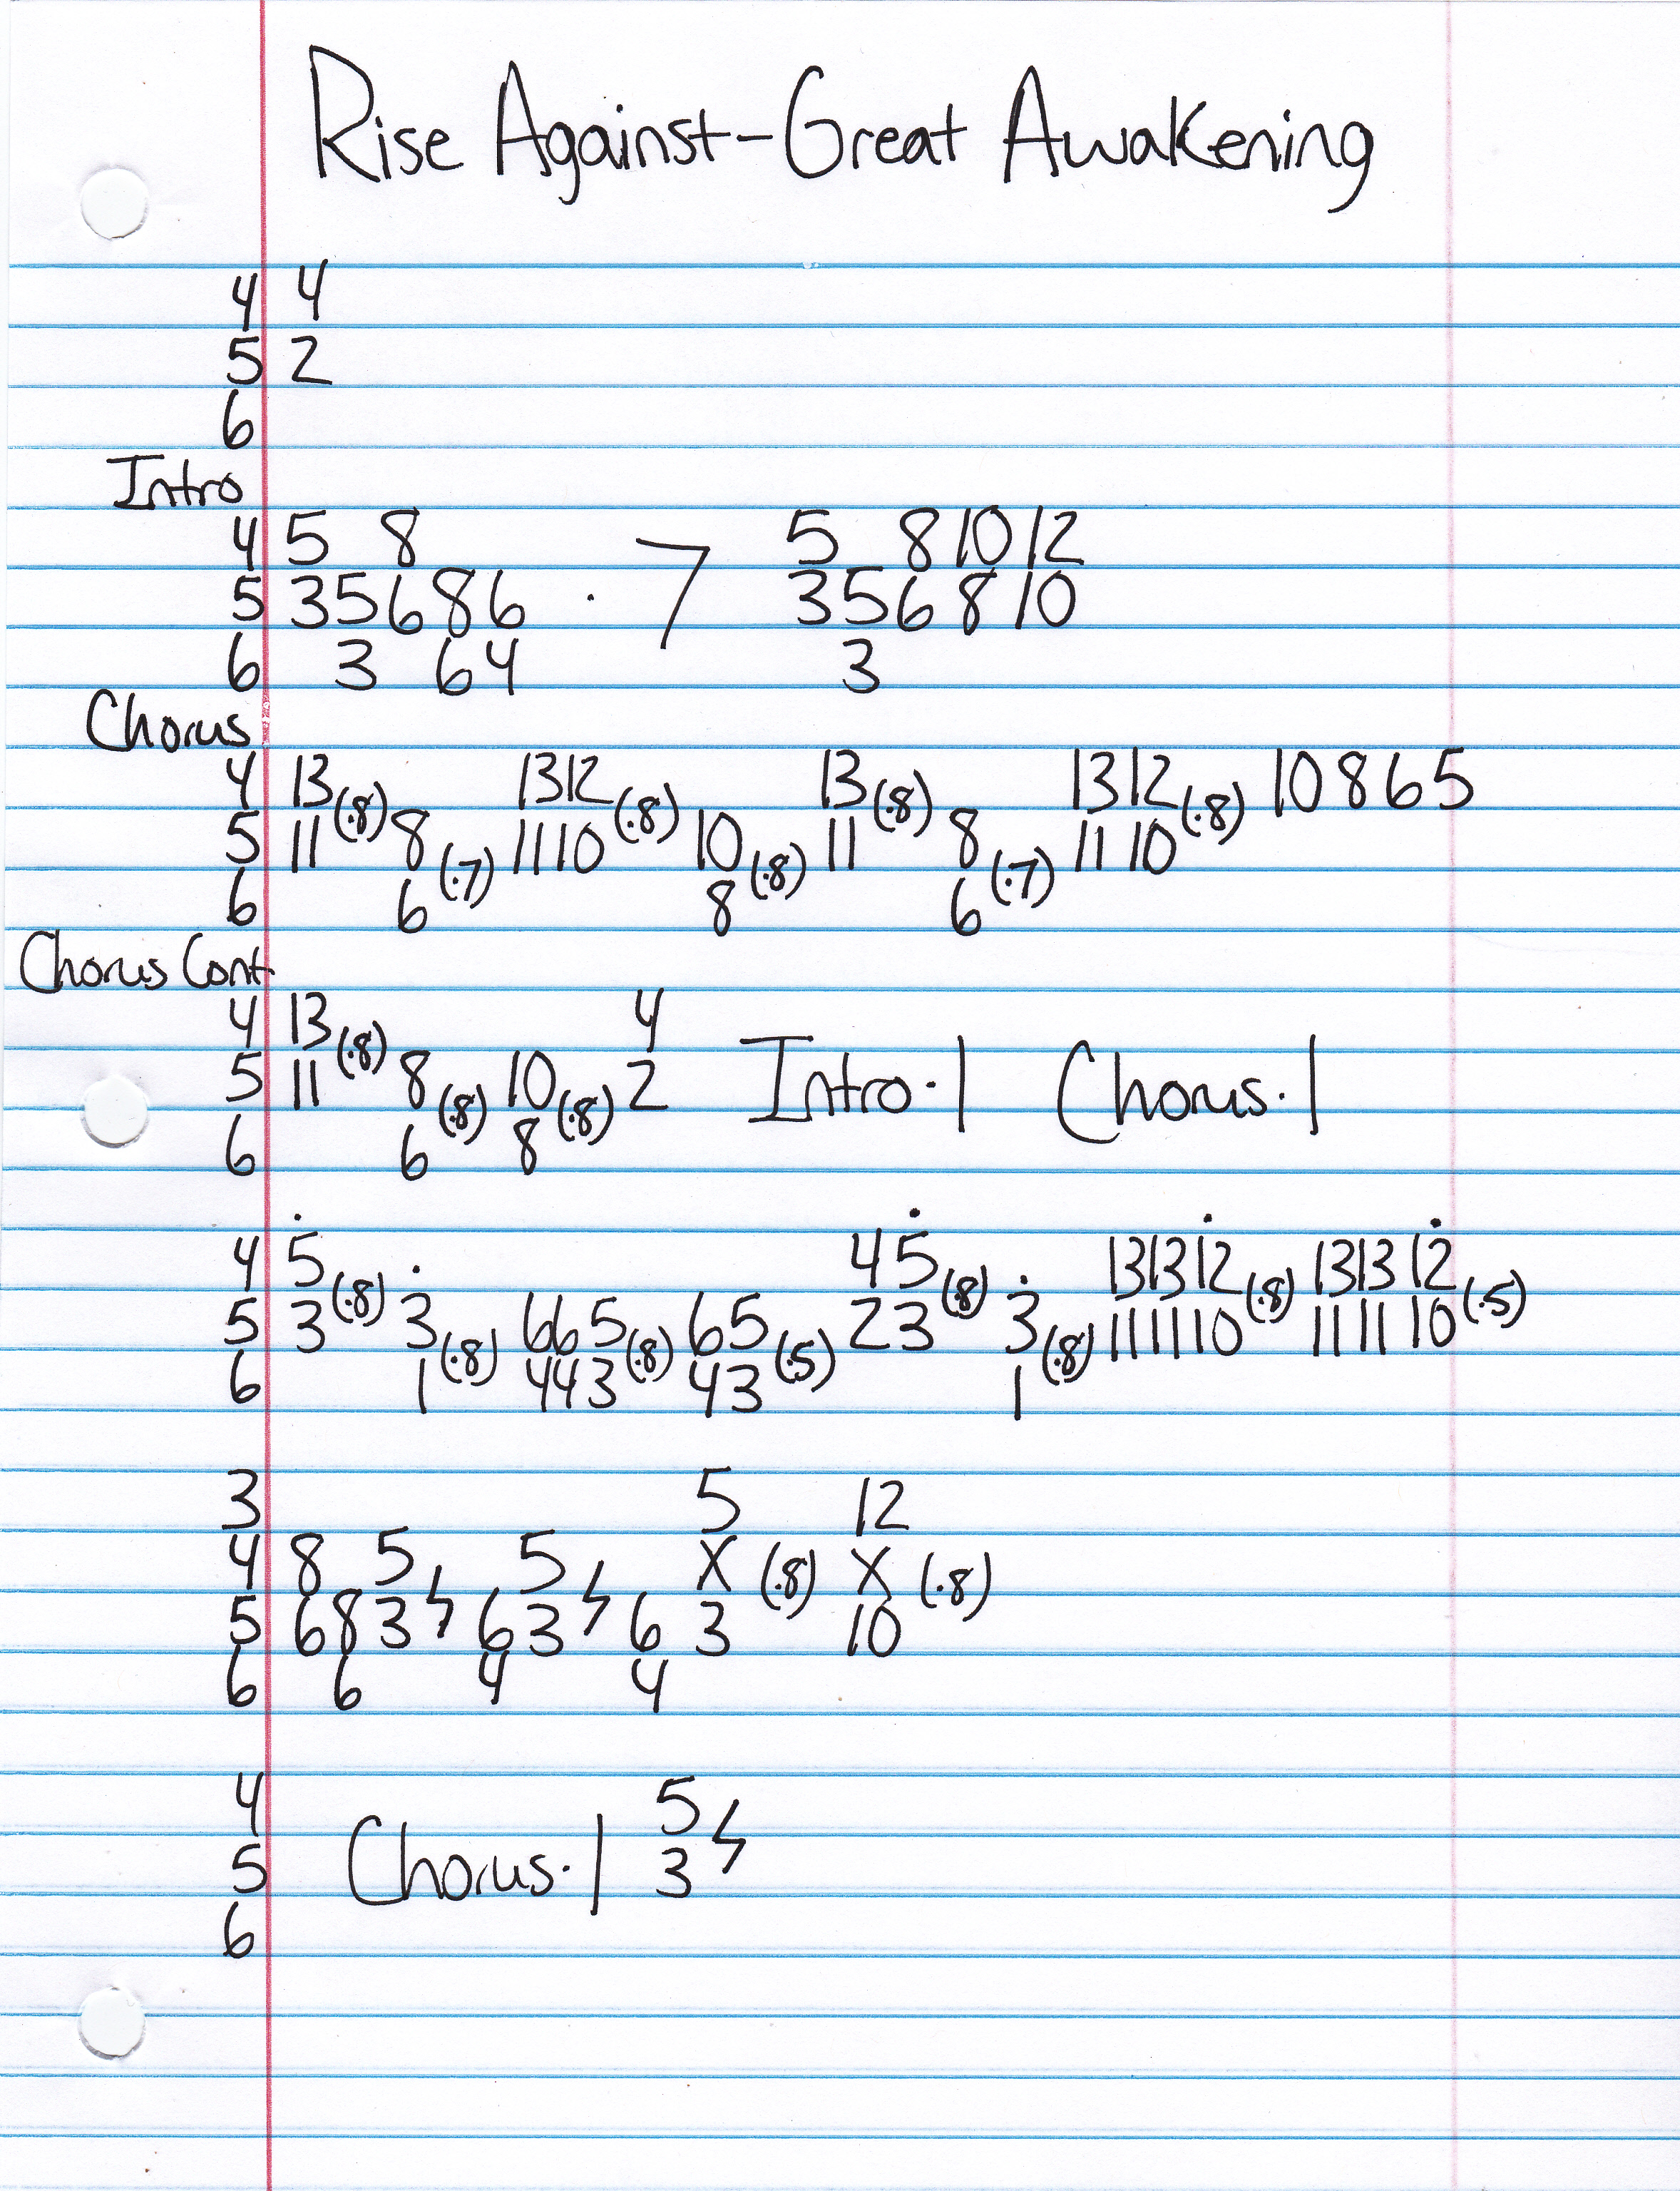 Rise Against - Great Awakening
4 4
5 2
6
Intro
4 5 8 5 8 10 12
5 3 5 6 8 6 . 7 3 5 6 8 10
6 3 6 4 3
Chorus
4 13 (.8) 13 12 (.8) 13 (.8) 13 12 (.8) 10 8 6 5
5 11 8 (.7) 11 10 10 (.8) 11 8 (.7) 11 10
6 6 8 6
Chorus Cont
4 13 (.8) 4
5 11 8 (.8) 10 (.8) 2 Intro . 1 Chorus . 1
6 6 8
4 5 (.8) 4 5 (.8) 13 13 12 (.8) 13 13 12 (.5)
5 3 3 (.8) 6 6 5 (.8) 6 5 (.5) 2 3 3 (.8) 11 11 10 11 11 10
6 1 4 4 3 4 3 1
3 5 12
4 8 5 5 X (.8) X (.8)
5 6 8 3 6 3 6 3 10
6 6 4 4
4 5
5 Chorus . 1 3
6